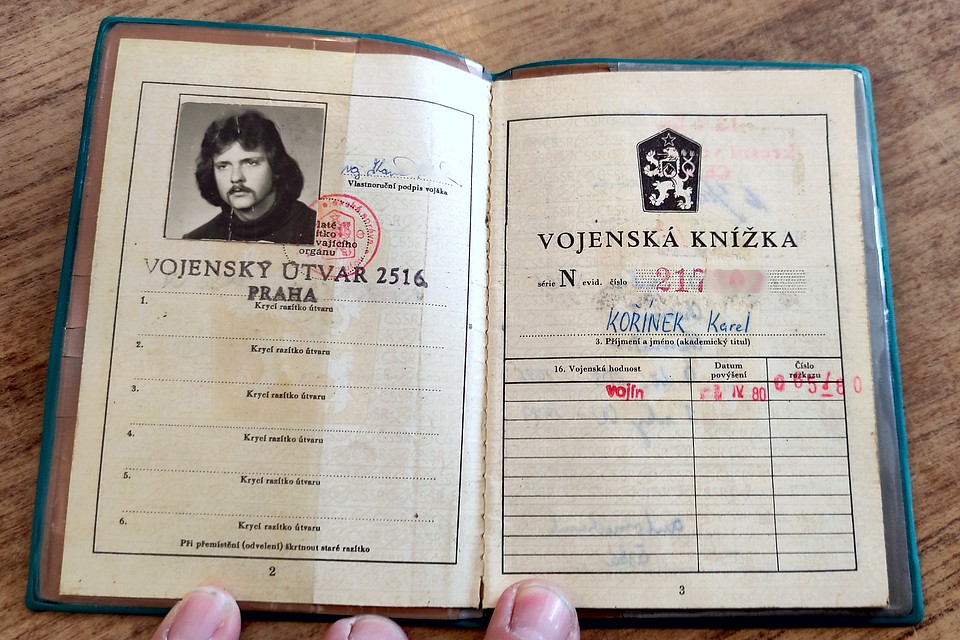 Vlastnoruční podpis vojáka
VOJENSKÝ ÚTVAR 2516
PRAHA
1.
Krycí razítko útvaru
2.
Krycí razítko útvaru
3.
Krycí razítko útvaru
4.
Krycí razítko útvaru
5.
Krycí razítko útvaru
6.
Krycí razítko útvaru
Při přemístění (odvelení) škrtnout staré razítko
2
VOJENSKÁ KNÍŽKA
série N evid. číslo 217
KOŘÍNEK Karel
3. Příjmení a jméno (akademický titul)
16. Vojenská hodnost
Datum povýšení
Číslo rozkazu
vojín
IV 80
3